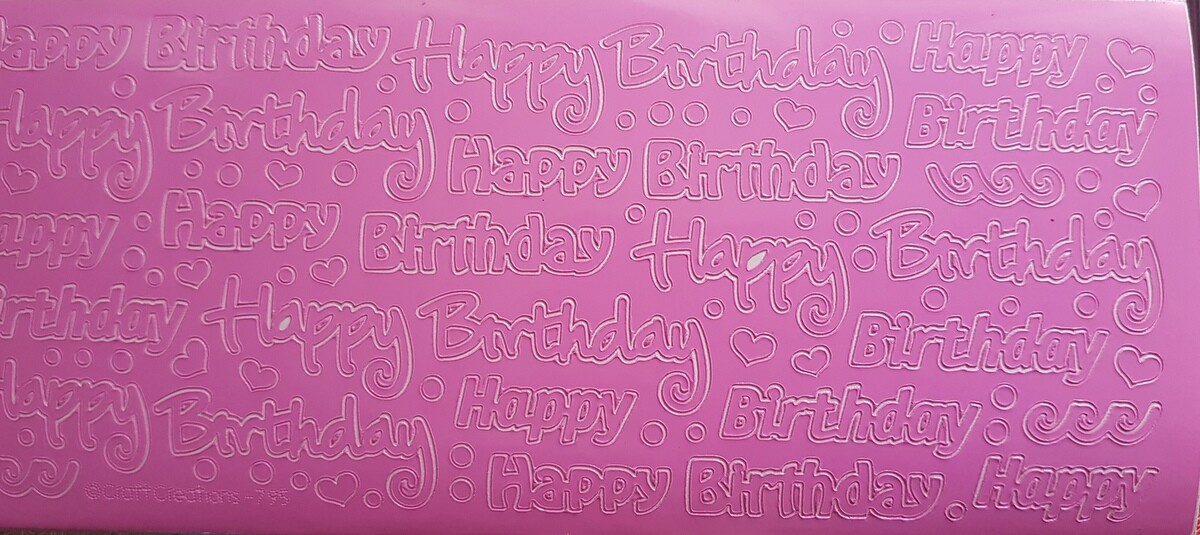 Happy Birthday Happy Birthday Happy
Happy Birthday Birthday
Happy Birthday
Happy Happy Birthday Happy Birthday
Birthday Happy Birthday Birthday
Happy Birthday Happy Birthday
©Craft Creations - Happy Birthday Happy